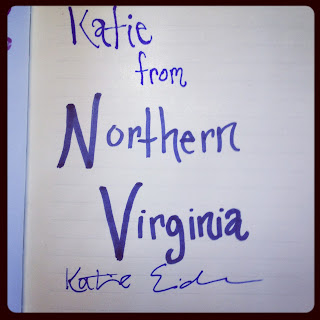 Katie
from
Northern
Virginia
Katie